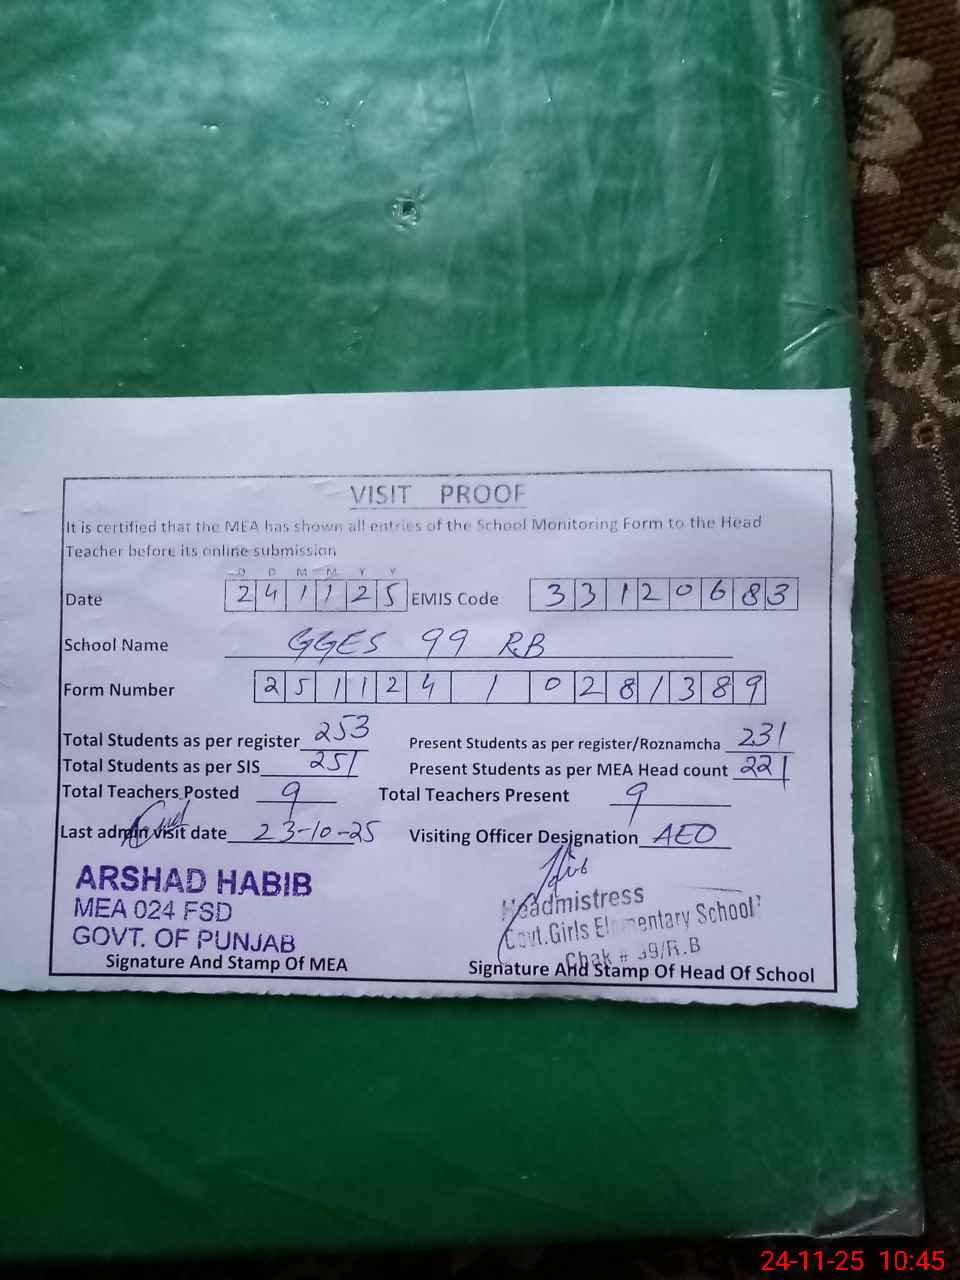 VISIT PROOF
It is certified that the MEA has shown all entries of the School Monitoring Form to the Head
Teacher before its online submission
D D M M Y Y
Date 2 4 1 1 2 5 EMIS Code 3 3 1 2 0 6 8 3
School Name GGES 99 RB
Form Number 2 5 1 1 2 4 1 0 2 8 1 3 8 9
Total Students as per register 253 Present Students as per register/Roznamcha 231
Total Students as per SIS 251 Present Students as per MEA Head count 221
Total Teachers Posted 9 Total Teachers Present 9
Last admin visit date 23-10-25 Visiting Officer Designation AEO
ARSHAD HABIB
MEA 024 FSD
GOVT. OF PUNJAB
Signature And Stamp Of MEA
Headmistress
Govt.Girls Elementary School
Chak # 99/R.B
Signature And Stamp Of Head Of School
24-11-25 10:45